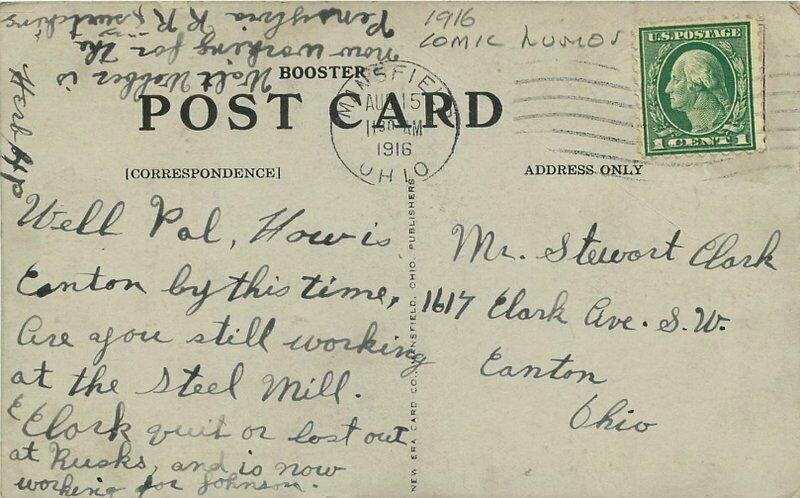 1916
COMIC
U.S. POSTAGE
1 CENT 1
BOOSTER
POST CARD
MANSFIELD
AUG 15
1130 AM
1916
OHIO
[CORRESPONDENCE]
ADDRESS ONLY
Well Pal, How is
Canton by this time,
Are you still working
at the Steel Mill.
Clark quit or lost out
at Rusks, and is now
working for Johnson.
Walt Webber is
now working for the
Pensylvia R R switching
Herb
Mr. Stewart Clark
1617 Clark Ave. S.W.
Canton
Ohio
NEW ERA CARD CO., MANSFIELD, OHIO, PUBLISHERS